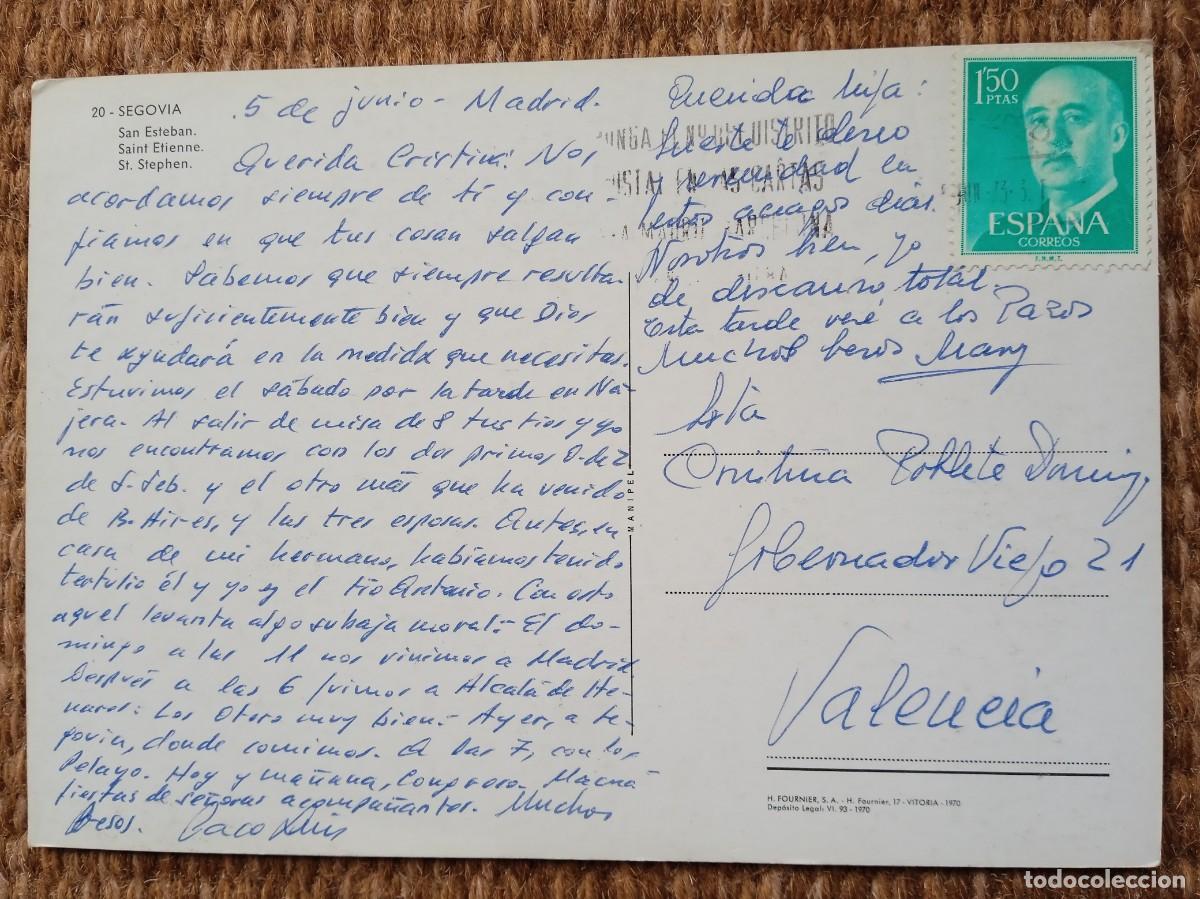 20 - SEGOVIA
San Esteban.
Saint Etienne.
St. Stephen.
5 de junio - Madrid.
Querida Cristina: Nos
acordamos siempre de ti y con-
fiamos en que tus cosas salgan
bien. Sabemos que siempre resulta-
rán suficientemente bien y que Dios
te ayudará en la medida que necesitas.
Estuvimos el sábado por la tarde en Ná-
jera. Al salir de misa de 8 tus tios y yo
nos encontramos con los dos primos
de S. Seb. y el otro más que ha venido
de B. Aires, y las tres esposas. Antes, en
casa de mi hermano, habíamos tenido
tertulia él y yo y el tío Antonio. Con esto
aquel levanta algo su baja moral. El do-
mingo a las 11 nos vinimos a Madrid
Después a las 6 fuimos a Alcalá de He-
nares: Los Otero muy bien. Ayer, a Se-
govia, donde comimos. A las 7, con los
Pelayo. Hoy y mañana, Congreso.
fiestas de señoras acompañantes. Muchos
besos. Paco Luis
MANIPEL
Querida hija:
Suerte te deseo
y serenidad en
estos aciagos días.
Nosotros bien, yo
de descanso total.
Esta tarde veré a los Pazos
Muchos besos Mary
PONGA EL Nº DEL DISTRITO
POSTAL EN LAS CARTAS
PARA MADRID BARCELONA
1'50
PTAS
ESPAÑA
CORREOS
F.N.M.T.
Srta
Cristina Poblete Doming.
Gobernador Viejo 21
Valencia
H. FOURNIER, S. A. - H. Fournier, 17 - VITORIA - 1970
Depósito Legal: VI. 93 - 1970
todocoleccion